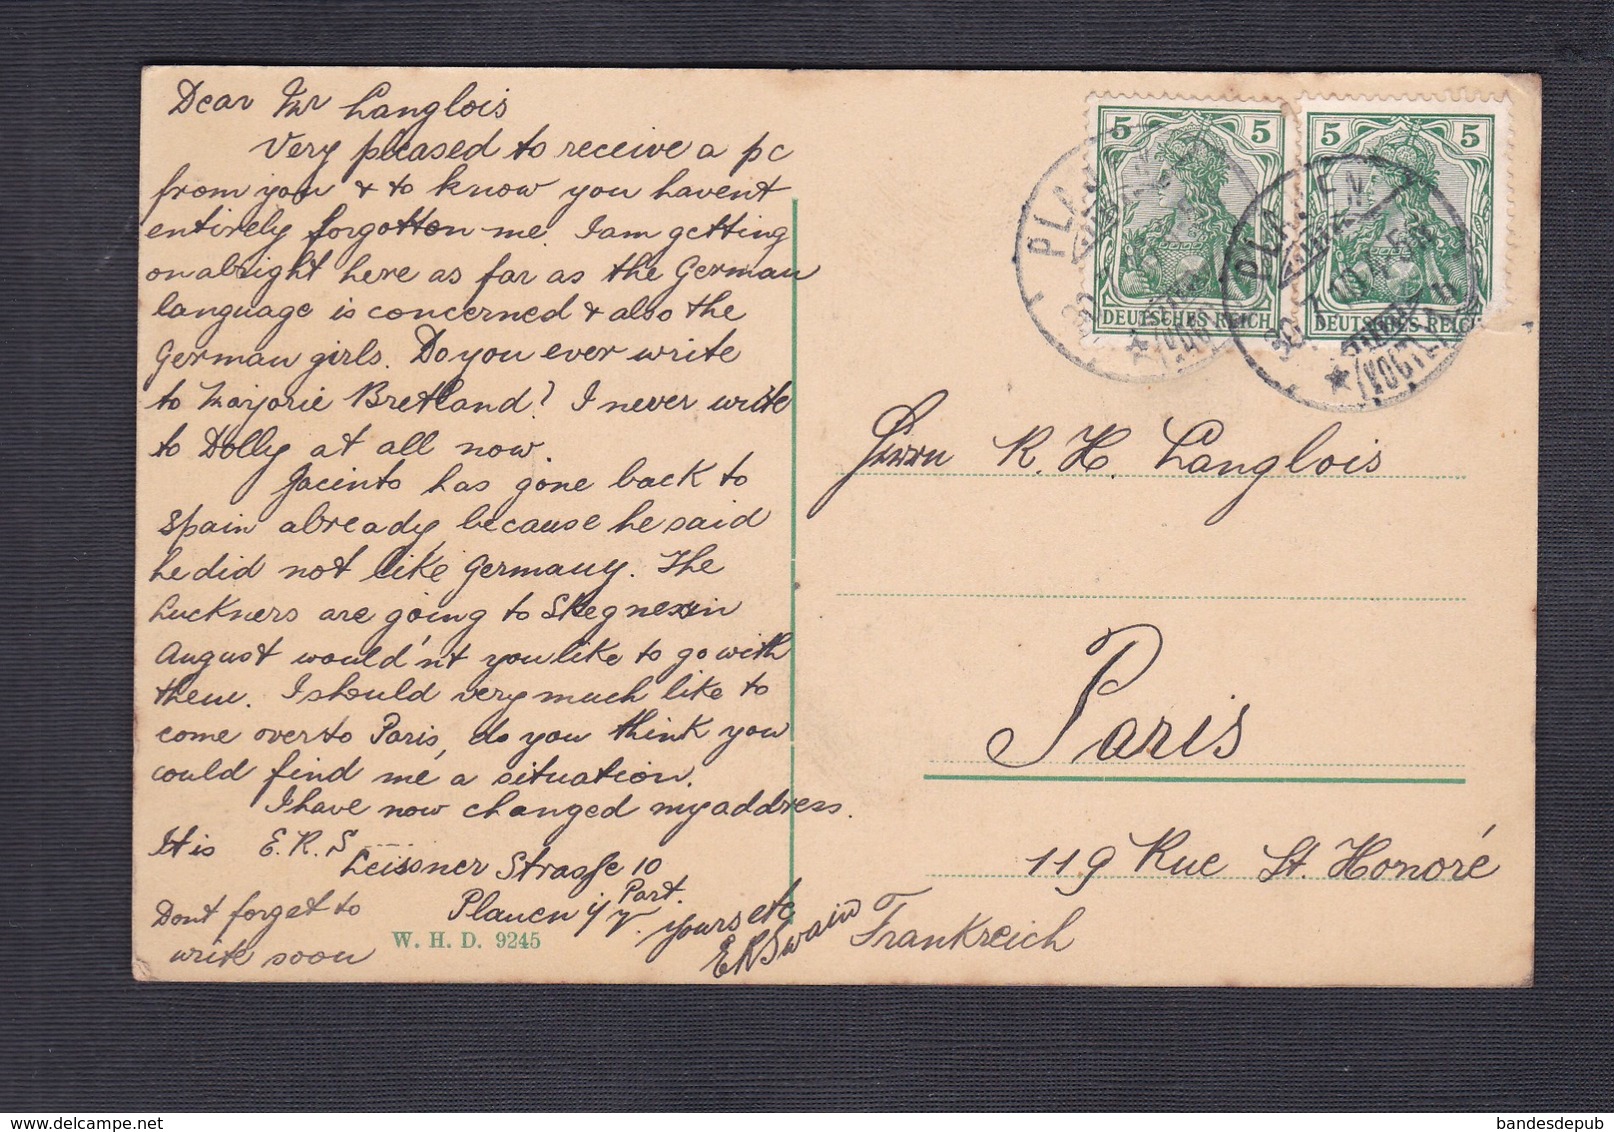 Dear Mr Langlois
Very pleased to receive a pc
from you & to know you havent
entirely forgotton me. I am getting
on alright here as far as the German
language is concerned & also the
German girls. Do you ever write
to Marjorie Bretland? I never write
to Dolly at all now.
Jacinto has gone back to
Spain already because he said
he did not like Germany. The
Luckners are going to Skegness in
August would'nt you like to go with
them. I should very much like to
come over to Paris, do you think you
could find me a situation.
I have now changed my address.
It is E. R. S
Leissner Strasse 10
Part.
Plauen i/V.
Dont forget to
write soon
yours etc
E R Swain
W. H. D. 9245
5 5
DEUTSCHES REICH
5 5
DEUTSCHES REICH
PLAUEN
(VOGTL)
Herrn R. H. Langlois
Paris
119 Rue St. Honoré
Frankreich
bandesdepub